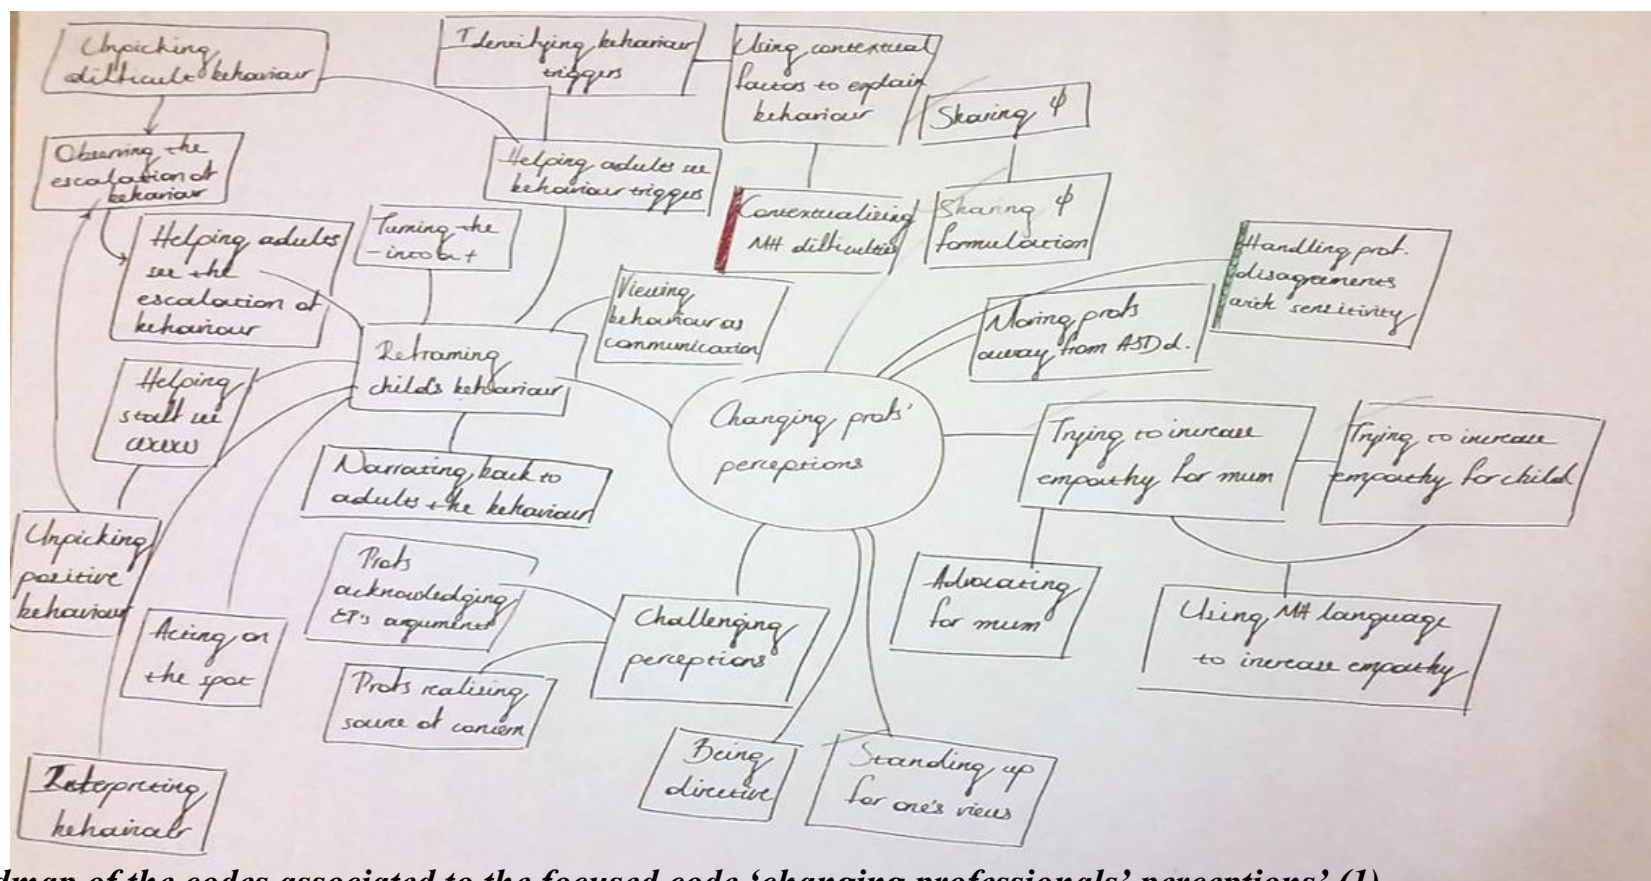 Unpicking
difficult behaviour
Identifying behaviour
triggers
Using contextual
factors to explain
behaviour
Sharing ψ
Observing the
escalation of
behaviour
Helping adults see
behaviour triggers
Contextualising
MH difficulties
Sharing ψ
formulation
Handling prof.
disagreements
with sensitivity
Helping adults
see the
escalation of
behaviour
Turning the
- into a +
Viewing
behaviour as
communication
Moving profs
away from ASD d.
Reframing
child's behaviour
Helping
staff see
Changing profs'
perceptions
Trying to increase
empathy for mum
Trying to increase
empathy for child
Narrating back to
adults the behaviour
Unpicking
positive
behaviour
Profs
acknowledging
EP's argument
Challenging
perceptions
Advocating
for mum
Using MH language
to increase empathy
Acting on
the spot
Profs realising
source of concern
Being
directive
Standing up
for one's views
Interpreting
behaviour
dmap of the codes associated to the focused code ‘changing professionals’ perceptions’ (1)